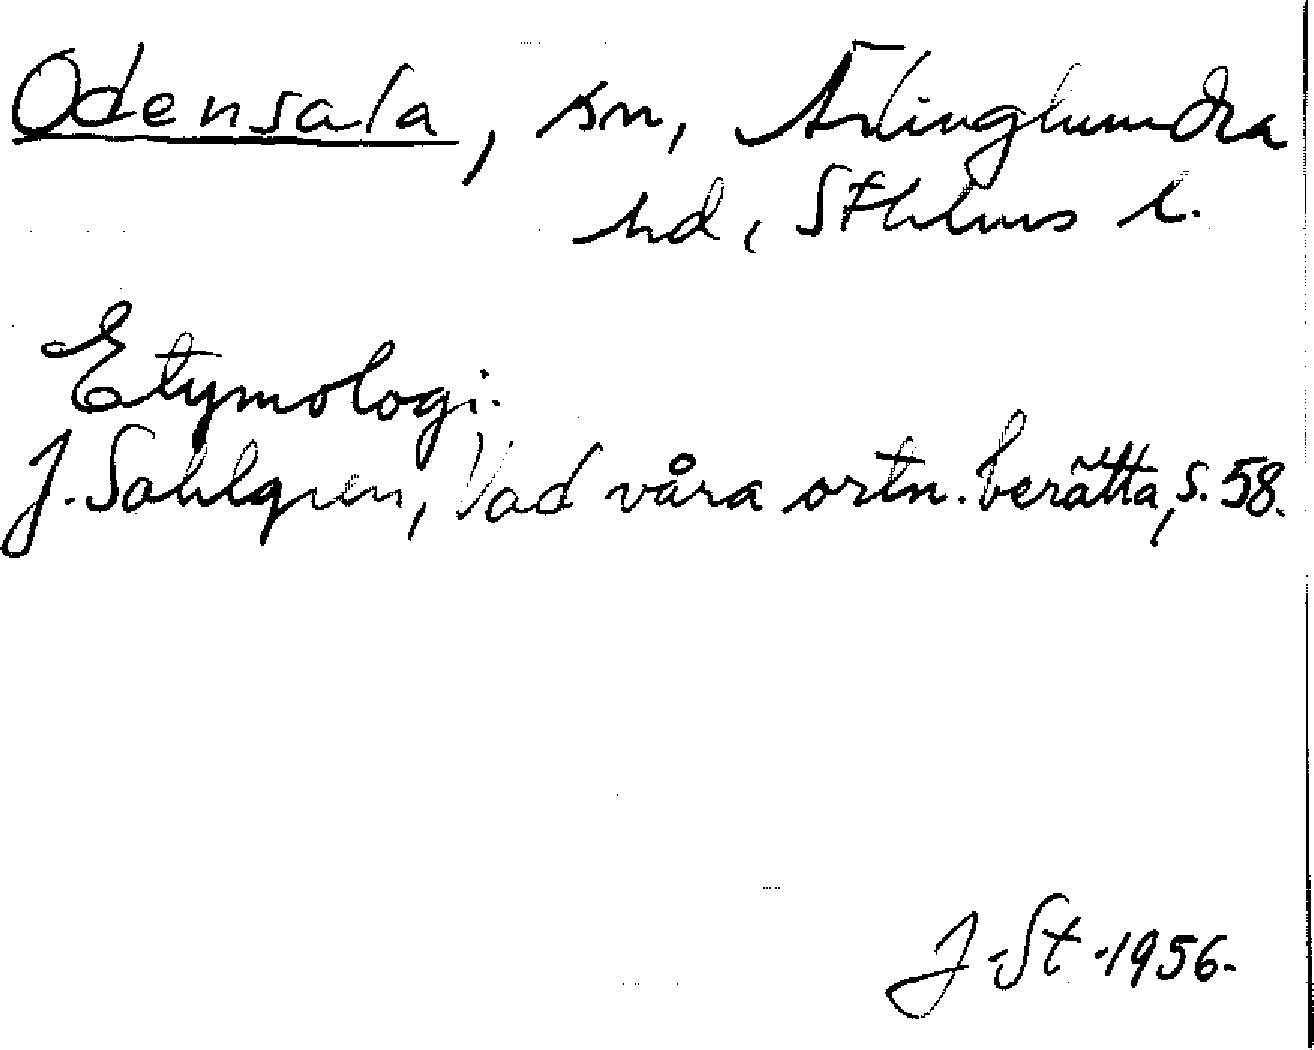 Odensala, sn, Ärlinghundra
hd, Sthlms l.
Etymologi.
J. Sahlgren, Vad våra ortn. berätta, s. 58.
J. St. 1956.